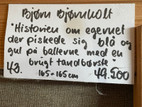 Bjørn Bjørnholt
"Historien om egernet
der piskede sig blå og
gul på ballerne med en
brugt tandbørste"
48. 165×165cm 49.500